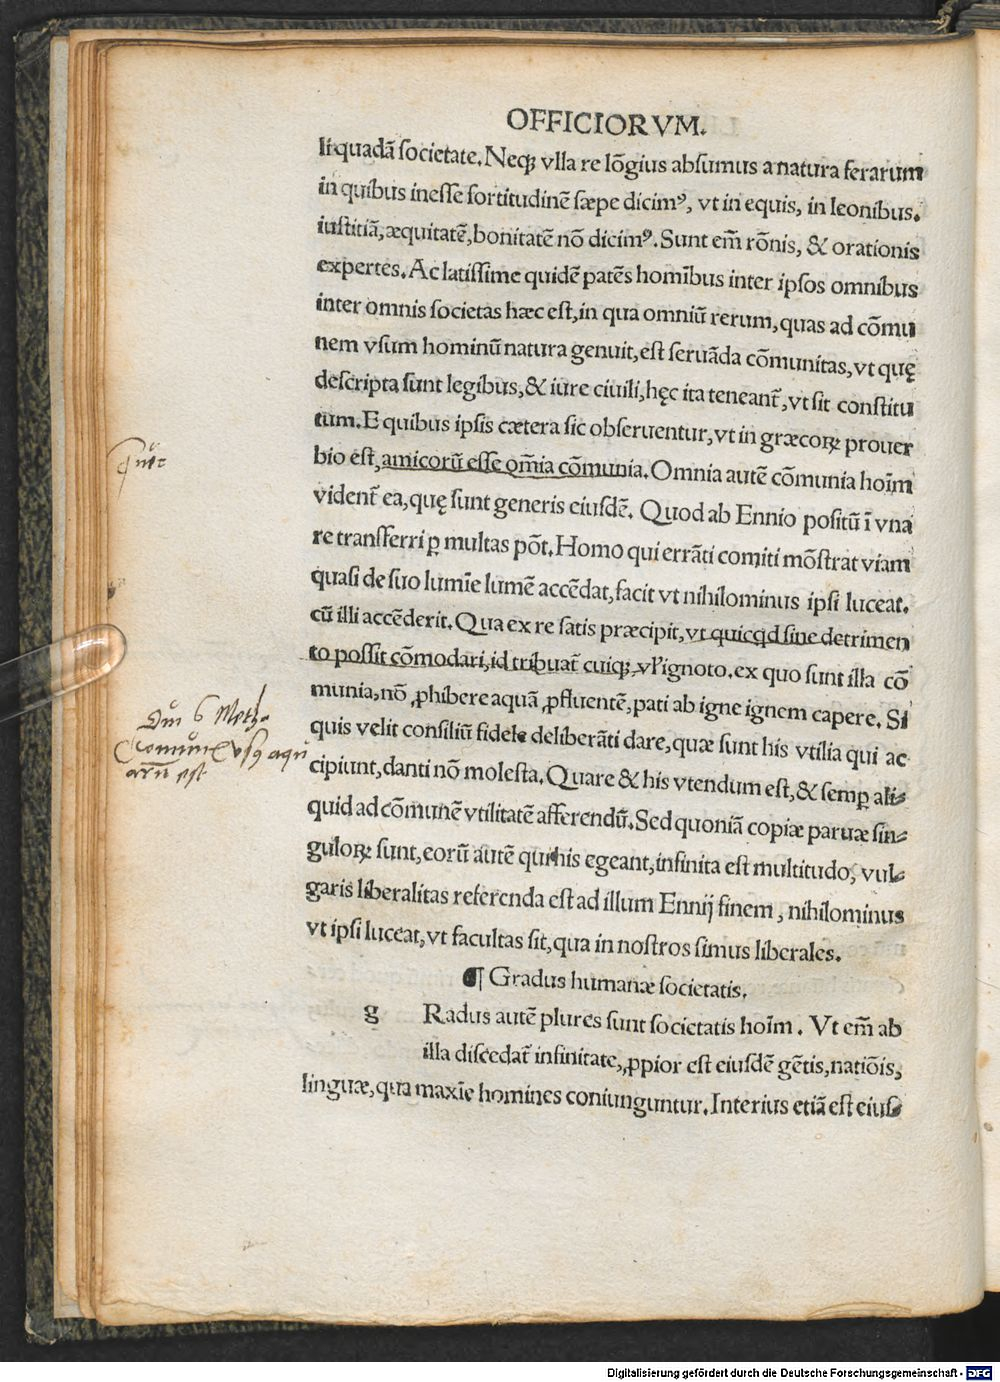 OFFICIORVM.
li quadã ſocietate. Neqꝫ vlla re lõgius abſumus a natura ferarum
in quibus ineſſe fortitudinẽ ſæpe dicimꝰ, vt in equis, in leonibus.
iuſtitiã, æquitatẽ, bonitatẽ nõ dicimꝰ. Sunt em̃ rõnis, & orationis
expertes. Ac latiſſime quidẽ patẽs homĩbus inter ipſos omnibus
inter omnis ſocietas hæc eſt, in qua omniũ rerum, quas ad cõmu
nem vſum hominũ natura genuit, eſt ſeruãda cõmunitas, vt quę
deſcripta ſunt legibus, & iure ciuili, hęc ita teneant̃, vt ſit conſtitu
tum. E quibus ipſis cætera ſic obſeruentur, vt in græcoꝝ prouer
bio eſt, amicorũ eſſe om̃ia cõmunia. Omnia autẽ cõmunia hoĩm
vident̃ ea, quę ſunt generis eiuſdẽ. Quod ab Ennio poſitũ ĩ vna
re tranſferri ꝑ multas põt. Homo qui errãti comiti mõſtrat viam
quaſi de ſuo lumĩe lumẽ accẽdat, facit vt nihilominus ipſi luceat.
cũ illi accẽderit. Qua ex re ſatis præcipit, vt quicꝗd ſine detrimen
to poſſit cõmodari, id tribuat̃ cuiqꝫ, vl̓ ignoto. ex quo ſunt illa cõ
munia, nõ ꝓhibere aquã ꝓfluentẽ, pati ab igne ignem capere. Si
quis velit conſiliũ fidele deliberãti dare, quæ ſunt his vtilia qui ac
cipiunt, danti nõ moleſta. Quare & his vtendum eſt, & ſemꝑ ali-
quid ad cõmunẽ vtilitatẽ afferendũ. Sed quoniã copiæ paruæ ſin-
guloꝝ ſunt, eorũ autẽ qui his egeant, infinita eſt multitudo, vul-
garis liberalitas referenda eſt ad illum Ennij finem, nihilominus
vt ipſi luceat, vt facultas ſit, qua in noſtros ſimus liberales.
¶ Gradus humanæ ſocietatis.
g Radus autẽ plures ſunt ſocietatis hoĩm. Vt em̃ ab
illa diſcedat̃ infinitate, ꝓpior eſt eiuſdẽ gẽtis, natiõis,
linguæ, qua maxĩe homines coniunguntur. Interius etiã eſt eiuſ-
6 Meth.
est
Digitalisierung gefördert durch die Deutsche Forschungsgemeinschaft - DFG